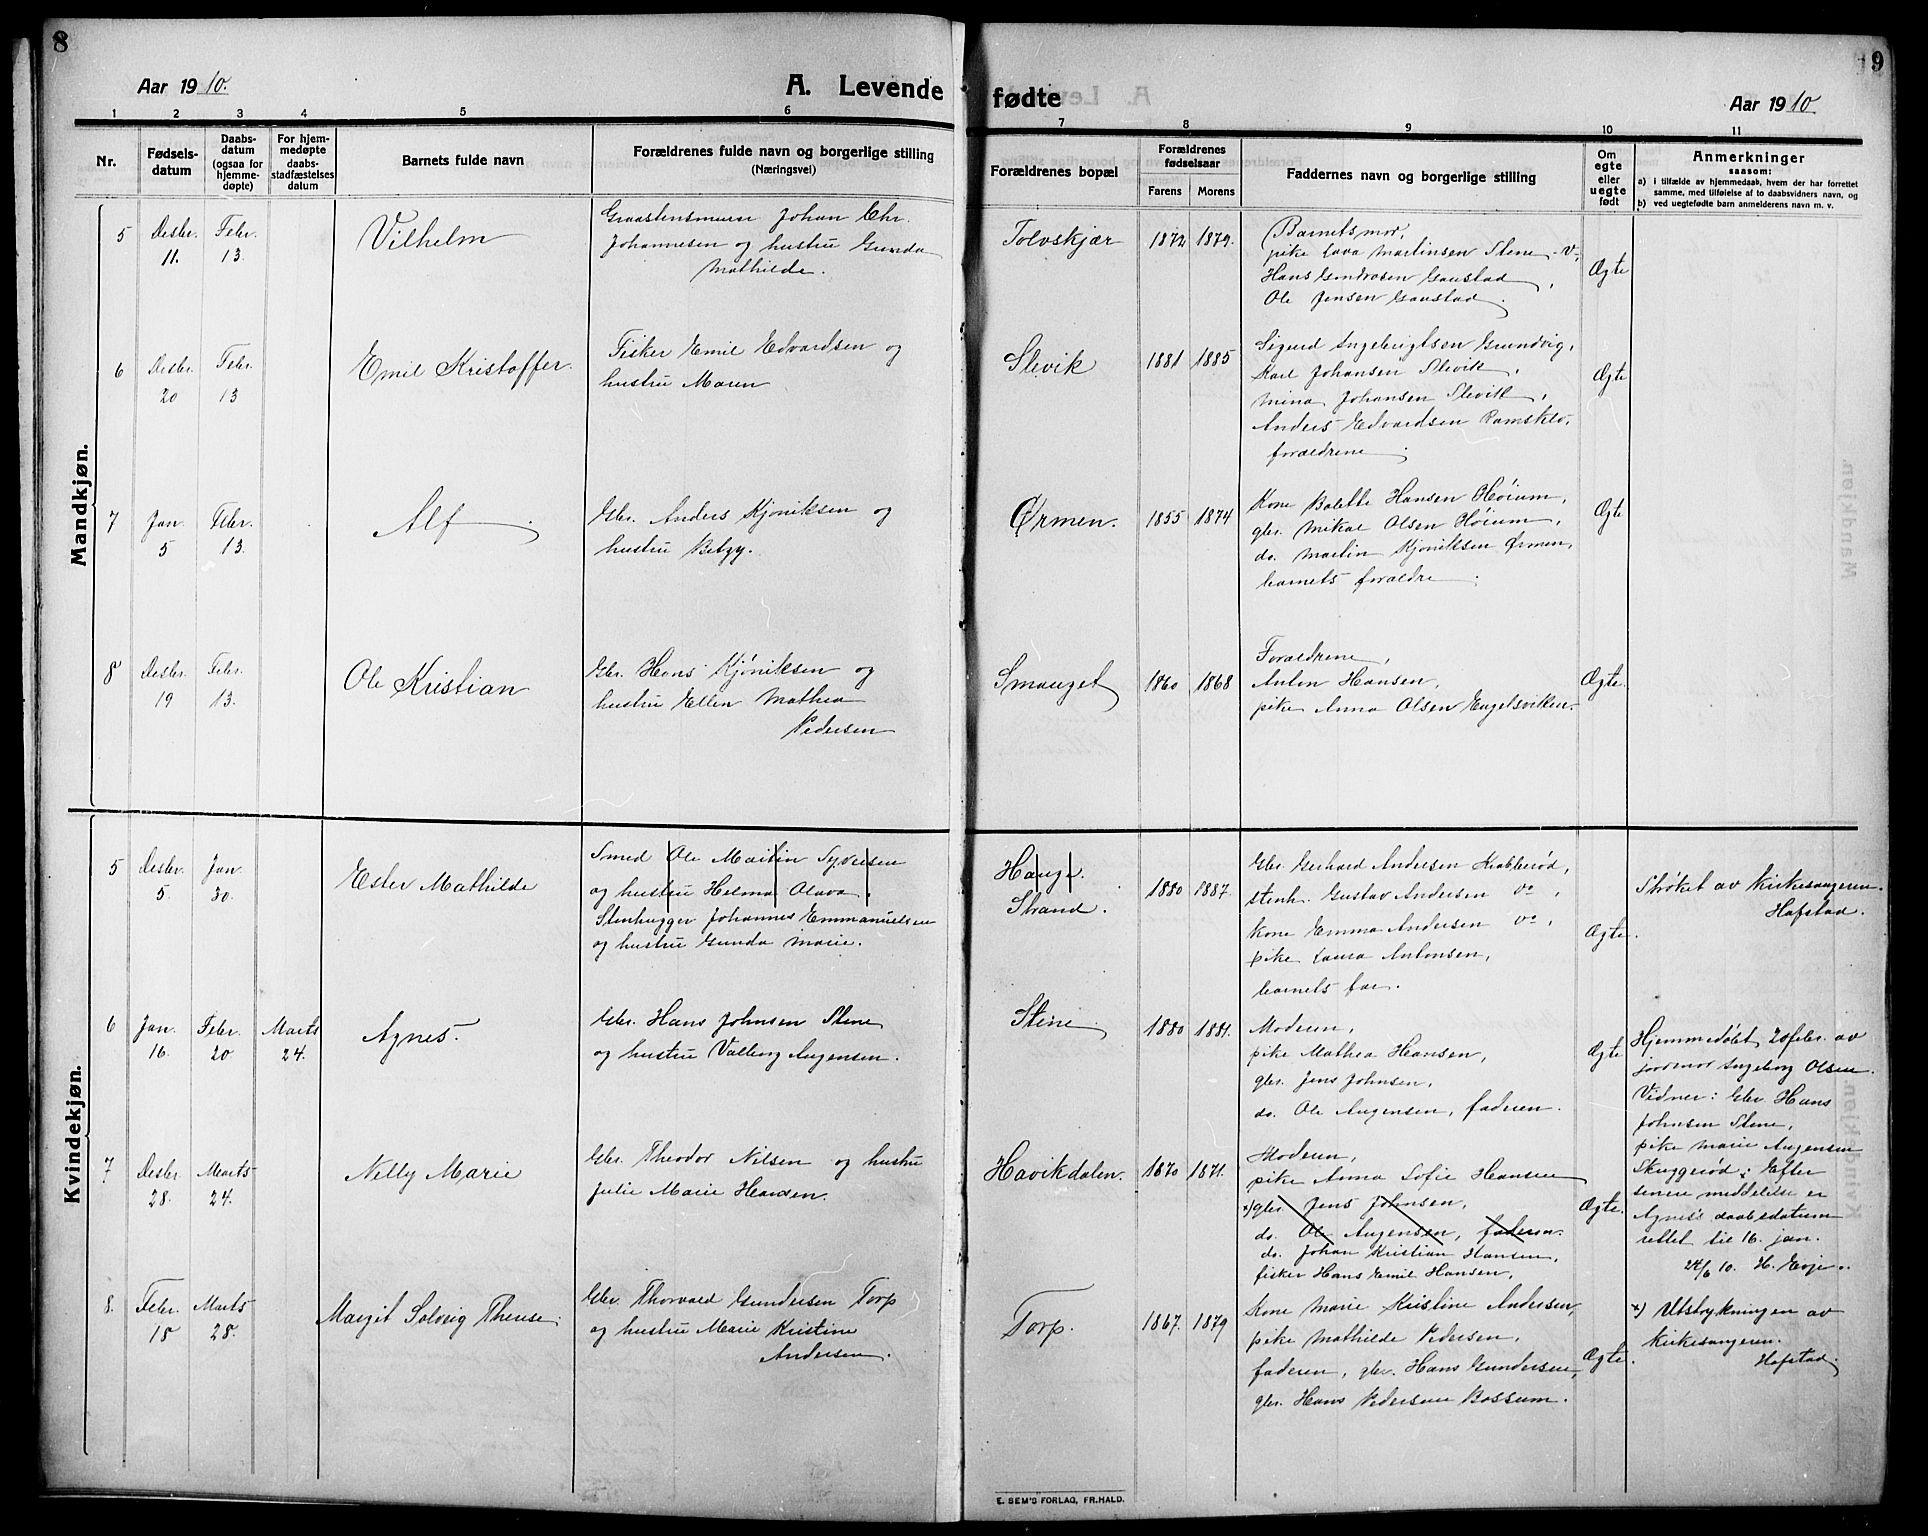 8
Aar 1910.
A. Levende
1 2 3 4 5 6
Nr.
Fødsels-
datum
Daabs-
datum
(ogsaa for
hjemme-
døpte)
For hjem-
medøpte
daabs-
stadfæstelses
datum
Barnets fulde navn
Forældrenes fulde navn og borgerlige stilling
(Næringsvei)
Mandkjøn.
5 Desbr. 11. Febr. 13 Vilhelm
Johan Chr.
Johannesen og hustru Gunda
Mathilde.
6 Desbr. 20 Febr. 13 Emil Kristoffer.
Fisker Emil Edvardsen og
hustru Maren
7 Jan. 5 Febr. 13. Alf.
Gbr. Anders Kjøniksen og
hustru Betzy.
8 Desbr. 19 Febr. 13. Ole Kristian
Gbr. Hans Kjøniksen og
hustru Ellen Mathea
Pedersen
Kvindekjøn.
5 Desbr. 5. Jan 30. Ester Mathilde
Smed Ole Martin Syversen
og hustru Helma Olava.
Stenhugger Johannes Emmanuelsen
og hustru Gunda Marie.
6 Jan. 16. Febr. 20 Marts 24. Agnes.
Gbr. Hans Johnsen Stene
og hustru Valborg Augensen.
7 Desbr. 28. Marts 24. Nelly Marie
Gbr. Theodor Nilsen og hustru
Julie Marie Hansen.
8. Febr. 15 Marts 28. Margit Solveig Therese.
Gbr. Thorvald Gundersen Torp
og hustru Marie Kristine
Andersen.
9
fødte
Aar 1910
7 8 9 10 11
Forældrenes bopæl
Forældrenes
fødselsaar
Farens Morens
Faddernes navn og borgerlige stilling
Om
egte
eller
uegte
født
Anmerkninger
saasom:
a) i tilfælde av hjemmedaab, hvem der har forrettet
samme, med tilføielse af to daabsvidners navn, og
b) ved uegtefødt barn anmelderens navn m. v.
Tolvskjær 1872 1879.
Barnets mor,
pike Lava Martinsen Stene
Hans Gaustad,
Ole Jensen Gaustad.
Ægte
Slevik 1881 1885
Sigurd Ingebrigtsen Grundvig,
Karl Johansen Slevik,
Mina Johansen Slevik,
Anders Edvardsen Ramsklov,
forældrene.
Ægte
Ørmen. 1855 1874
Kone Bolette Hansen Høium,
gbr. Mikal Olsen Høium,
do. Martin Kjøniksen Ørmen,
barnets forældre.
Ægte
Smauget 1860 1868
Forældrene,
Anton Hansen,
pike Anna Olsen Engelsviken.
Ægte.
Hauge.
Strand. 1880 1887.
Gbr. Gerhard Andersen Krabberød,
stenh. Gustav Andersen do,
Kone Emma Andersen do,
pike Laura Antonsen,
barnets far.
Ægte.
Strøket av Kirkesangeren.
Hafstad.
Stene 1880 1881.
Moderen,
pike Mathea Hansen,
gbr. Jens Johnsen,
do. Ole Augensen, faderen.
Ægte
Hjemmedøbt 20 febr. av
jordmor Ingeborg Olsen
Vidner: Gbr. Hans
Johnsen Stene,
pike Marie Augensen
Skuggerød; Efter
senere meddelelse er
Agnes's daabsdatum
rettet til 16. jan.
24/6 10. H. Evje.
Havikdalen. 1870 1871.
Moderen,
pike Anna Sofie Hansen
x) gbr. Jens Johnsen,
do. Ole Augensen, faderen.
do. Johan Kristian Hansen,
fisker Hans Emil Hansen,
Ægte.
Torp. 1867. 1879
Kone Marie Kristine Andersen,
pike Mathilde Pedersen,
faderen, gbr. Hans Gundersen,
gbr. Hans Pedersen Bossum.
Ægte.
x) Utstrykningen av
Kirkesangeren.
Hafstad.
E. SEM'S FORLAG, FR.HALD.